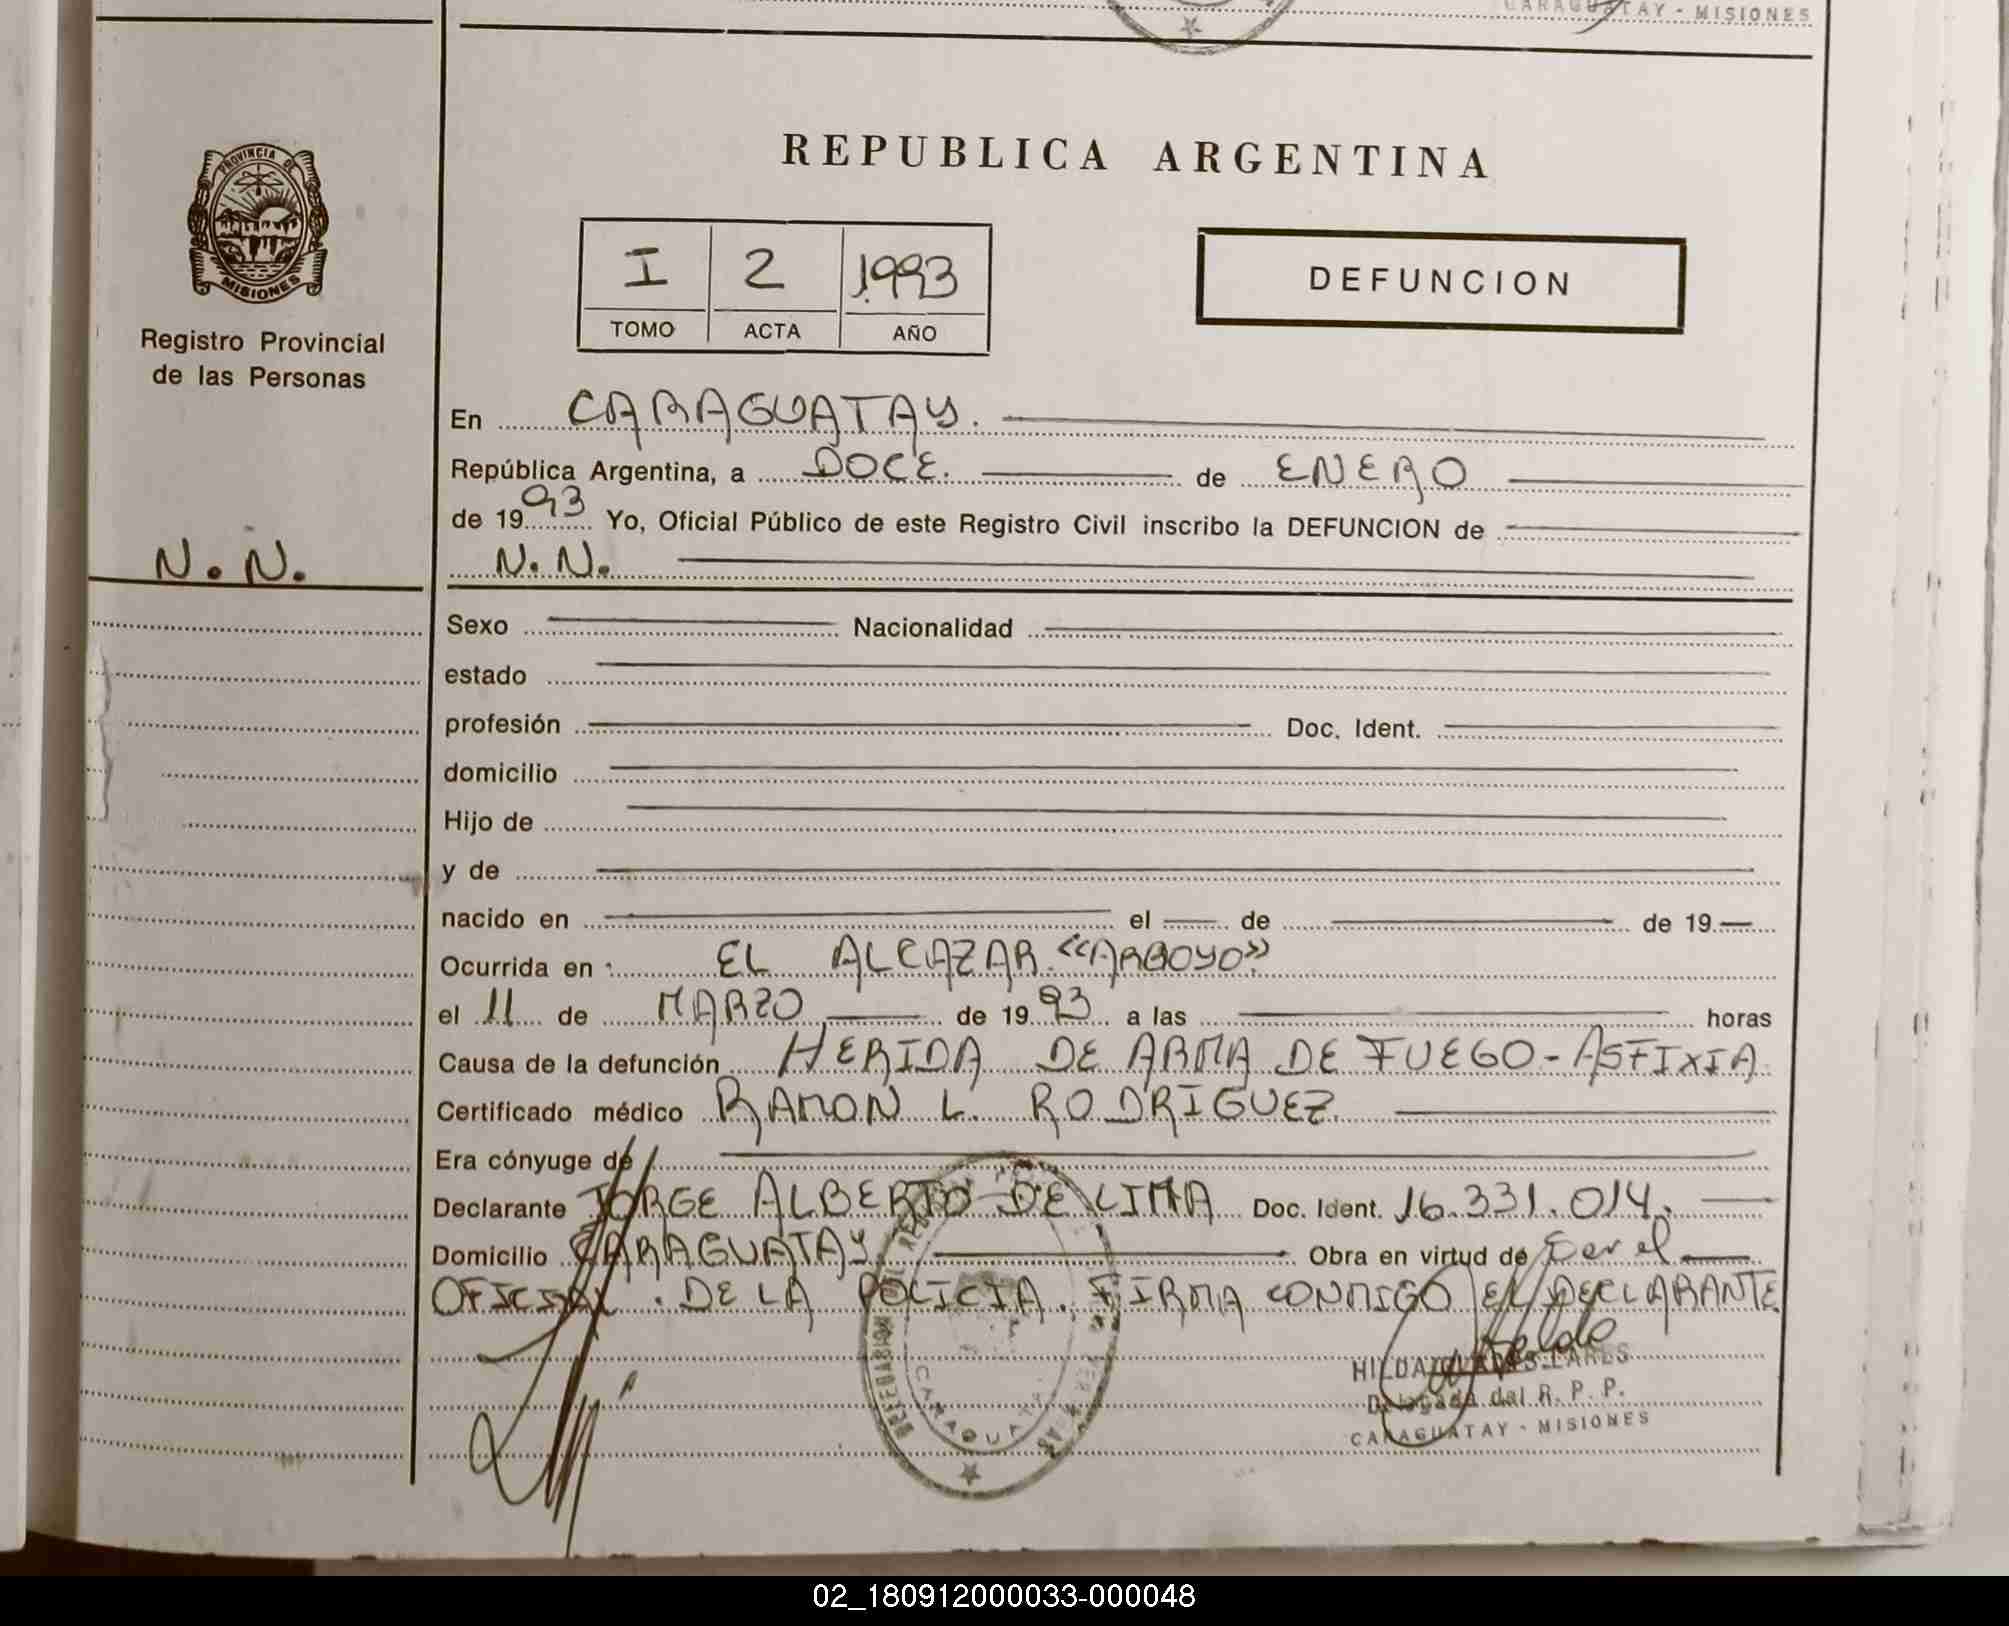 CARAGUATAY - MISIONES
REPUBLICA ARGENTINA
PROVINCIA DE
MISIONES
Registro Provincial
de las Personas
I 2 1993
TOMO ACTA AÑO
DEFUNCION
En CARAGUATAY.
República Argentina, a DOCE. de ENERO
de 1993 Yo, Oficial Público de este Registro Civil inscribo la DEFUNCION de
N. N.
N. N.
Sexo Nacionalidad
estado
profesión Doc. Ident.
domicilio
Hijo de
y de
nacido en el de de 19
Ocurrida en EL ALCAZAR «ARROYO»
el 11 de MARZO de 1993 a las horas
Causa de la defunción HERIDA DE ARMA DE FUEGO - ASFIXIA
Certificado médico RAMON L. RODRIGUEZ
Era cónyuge de
Declarante JORGE ALBERTO DE LIMA Doc. Ident. 16.331.014.
Domicilio CARAGUATAY Obra en virtud de ser el
OFICIAL. DE LA POLICIA. FIRMA CONMIGO EL DECLARANTE
HILDA
Delegada del R. P. P.
CARAGUATAY - MISIONES
02_180912000033-000048